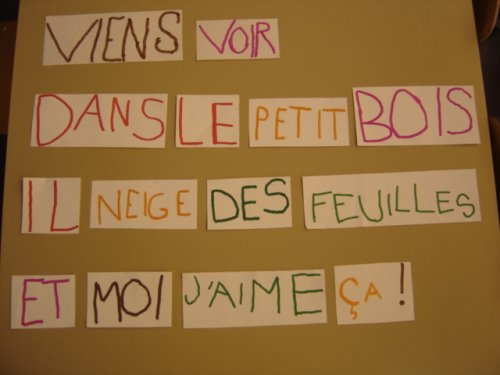 VIENS VOIR
DANS LE PETIT BOIS
IL NEIGE DES FEUILLES
ET MOI J'AIME ÇA !